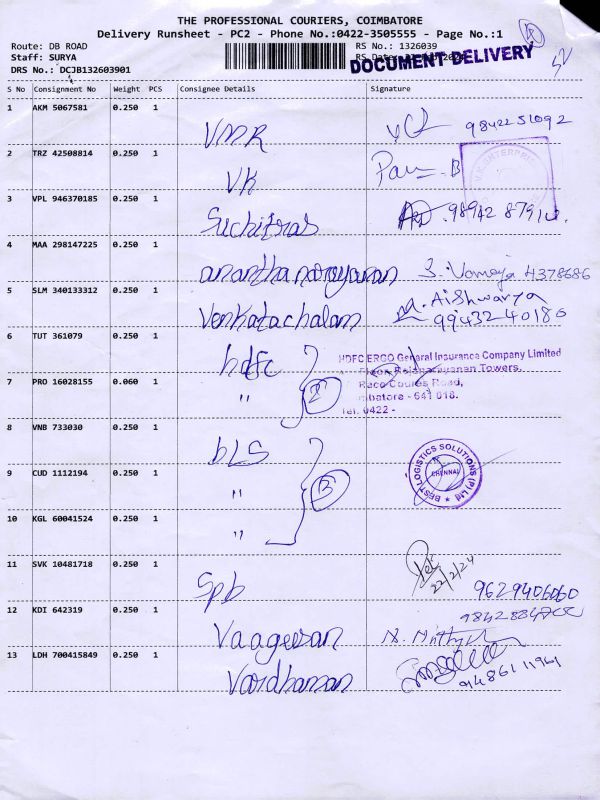 THE PROFESSIONAL COURIERS, COIMBATORE
Delivery Runsheet - PC2 - Phone No.:0422-3505555 - Page No.:1
Route: DB ROAD
RS No.: 1326039
Staff: SURYA
RS Date:
DOCUMENT DELIVERY
DRS No.: DCJB132603901
S No Consignment No Weight PCS Consignee Details Signature
1 AKM 5067581 0.250 1
VMR 9842251092
2 TRZ 42508814 0.250 1
VK B
3 VPL 946370185 0.250 1
Suchitras
4 MAA 298147225 0.250 1
ananthanarayanan 4378686
5 SLM 340133312 0.250 1
Venkatachalam M. Aishwarya
9943240186
6 TUT 361079 0.250 1
hdfc
HDFC ERGO General Insurance Company Limited
Towers,
7 PRO 16028155 0.060 1
" 2
Race Coures Road,
mbatore - 641 018.
Tel. 0422 -
8 VNB 733030 0.250 1
bLS
BEST LOGISTICS SOLUTIONS (P) Ltd
CHENNAI
9 CUD 1112194 0.250 1
" 3
10 KGL 60041524 0.250 1
"
11 SVK 10481718 0.250 1
22/2/24
Spb 9629406060
12 KDI 642319 0.250 1
Vaageesan
13 LDH 700415849 0.250 1
Vardhaman